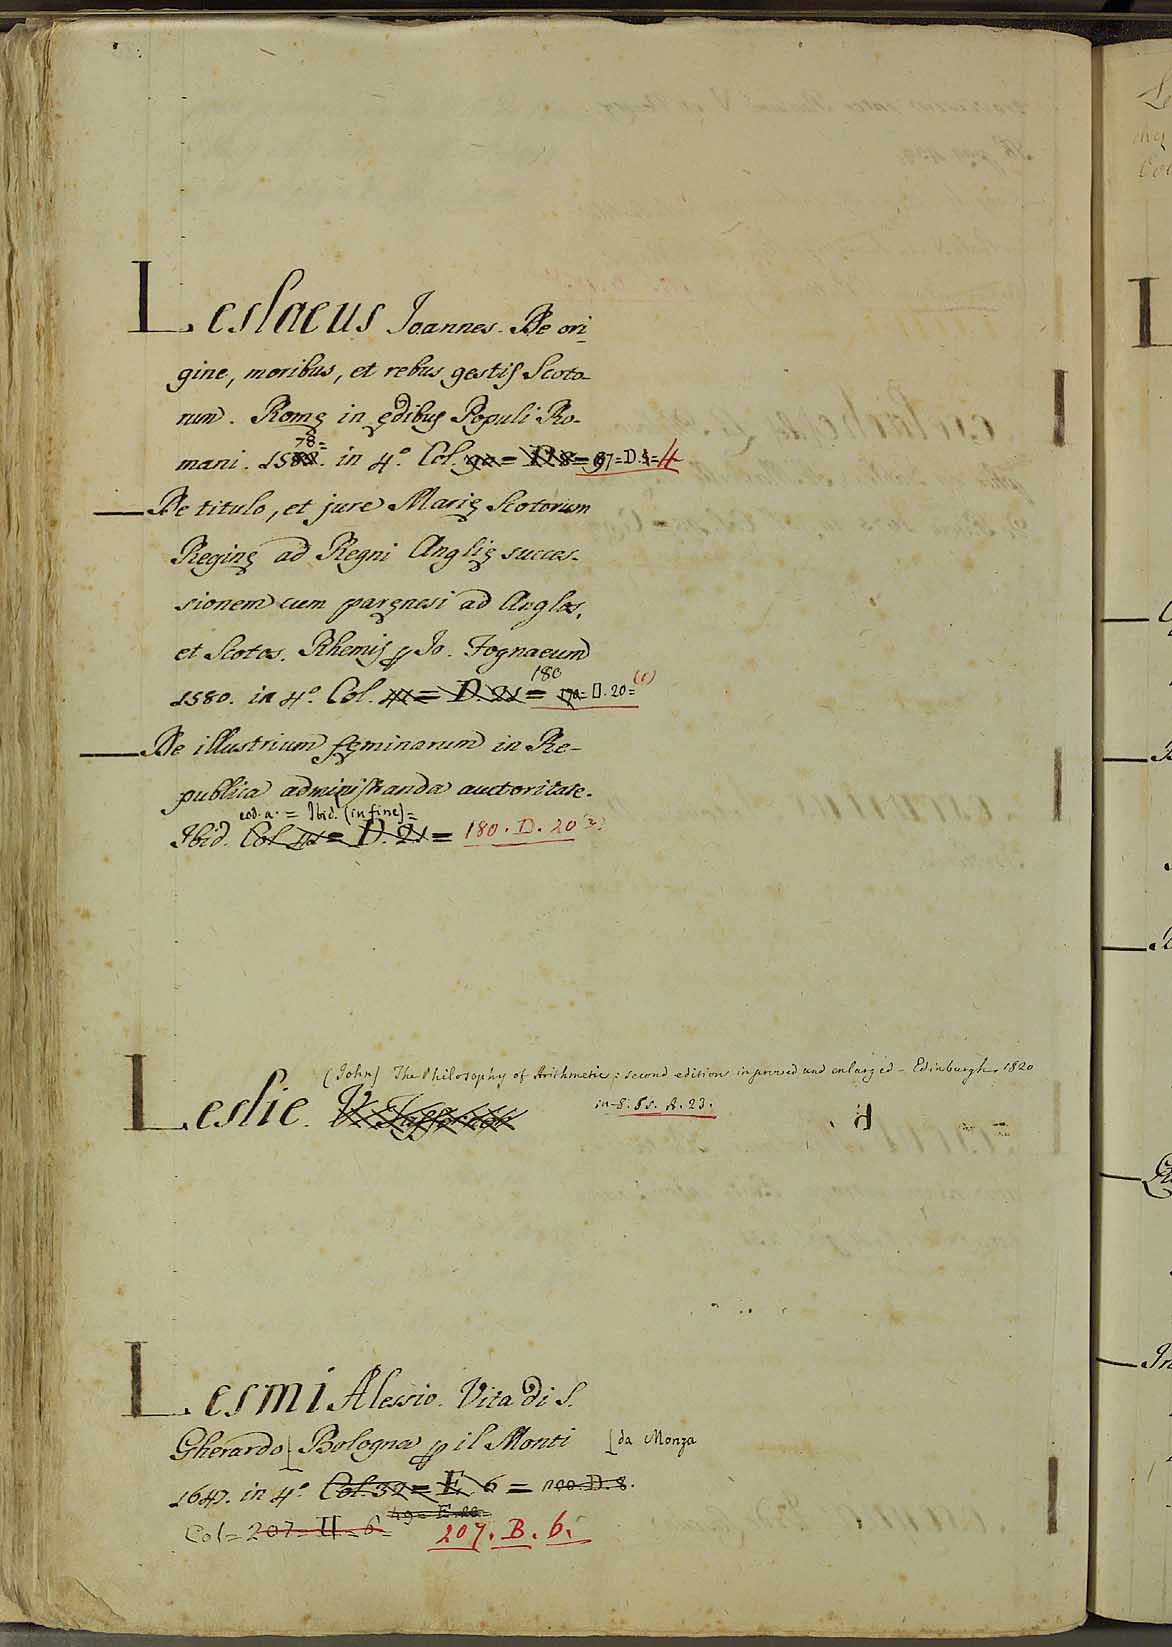 Leslaeus Joannes. De ori
gine, moribus, et rebus gestis Scoto
rum. Romę in ędibus Populi Ro-
78=
mani. 1588. in 4.º Col. 90= D. 8= 97=D.4=4
De titulo, et jure Marię Scotorum
Reginę ad Regni Anglię succes-
sionem cum paręnesi ad Anglos,
et Scotos. Rhemis p Jo. Fognaeum
180 (1)
1580. in 4.º Col. 41= D. 21= 170=D.20=
De illustrium fęminarum in Re-
publica administranda auctoritate.
eod. a. = Ibid. (in fine)=
Ibid. Col 41= D. 21= 180. D. 20 (2)
(John) The Philosophy of Arithmetic: second edition improved and enlarged - Edinburgh. 1820
Leslie. V. in-8. 55. A. 23.
Lesmi Alessio. Vita di S.
Gherardo[ Bologna p il Monti [da Monza
1647. in 4.º Col. 32= E. 6 = 100.D.8.
49= E. 20=
Col= 207= H= 6= 207. B. 6.